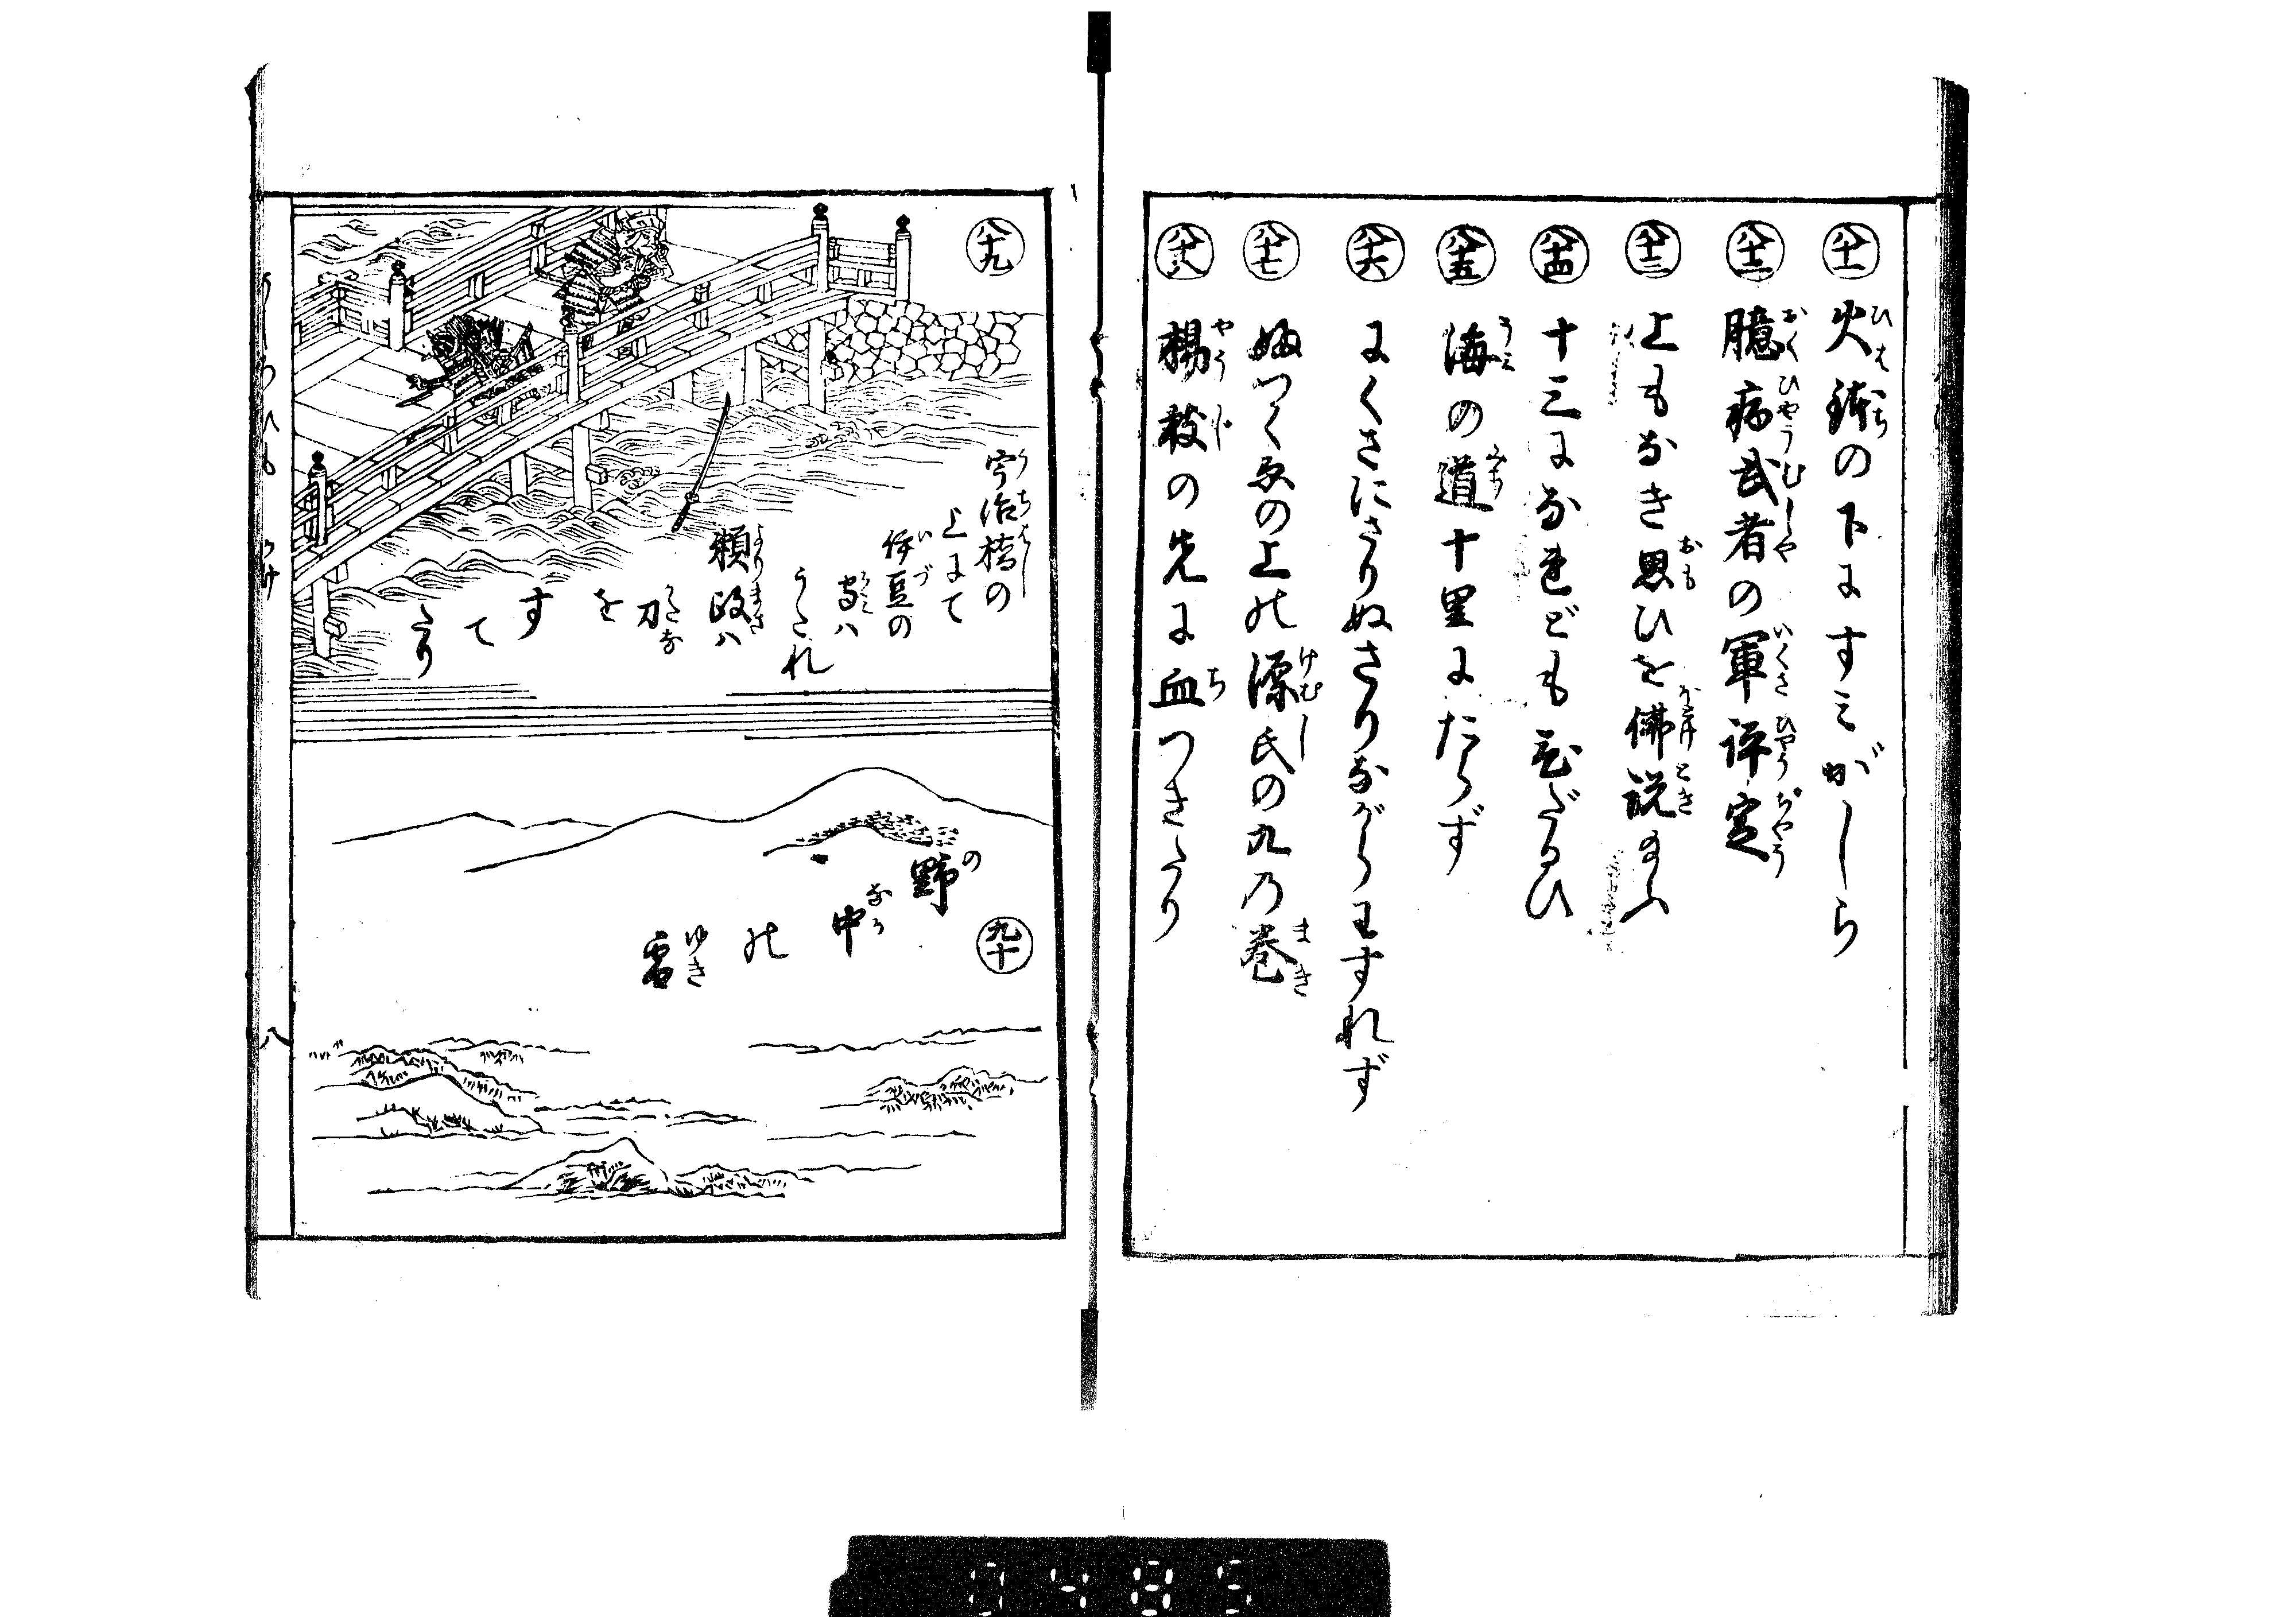 八十一 火鉢の下にすミがしら
八十二 臆病武者の軍評定
八十三 上もなき思ひを佛説給ふ
八十四 十三になれどもまだるひ
八十五 海の道十里にたらず
八十六 にくさにさりぬさりながらわすれず
八十七 ぬつくゑの上の源氏の九の巻
八十八 楊枝の先に血つきたり
八十九
宇治橋の
上にて
伊豆の
守ハ
うたれ
頼政ハ
刀
を
す
て
たり
九十
野
中
の
雪
八